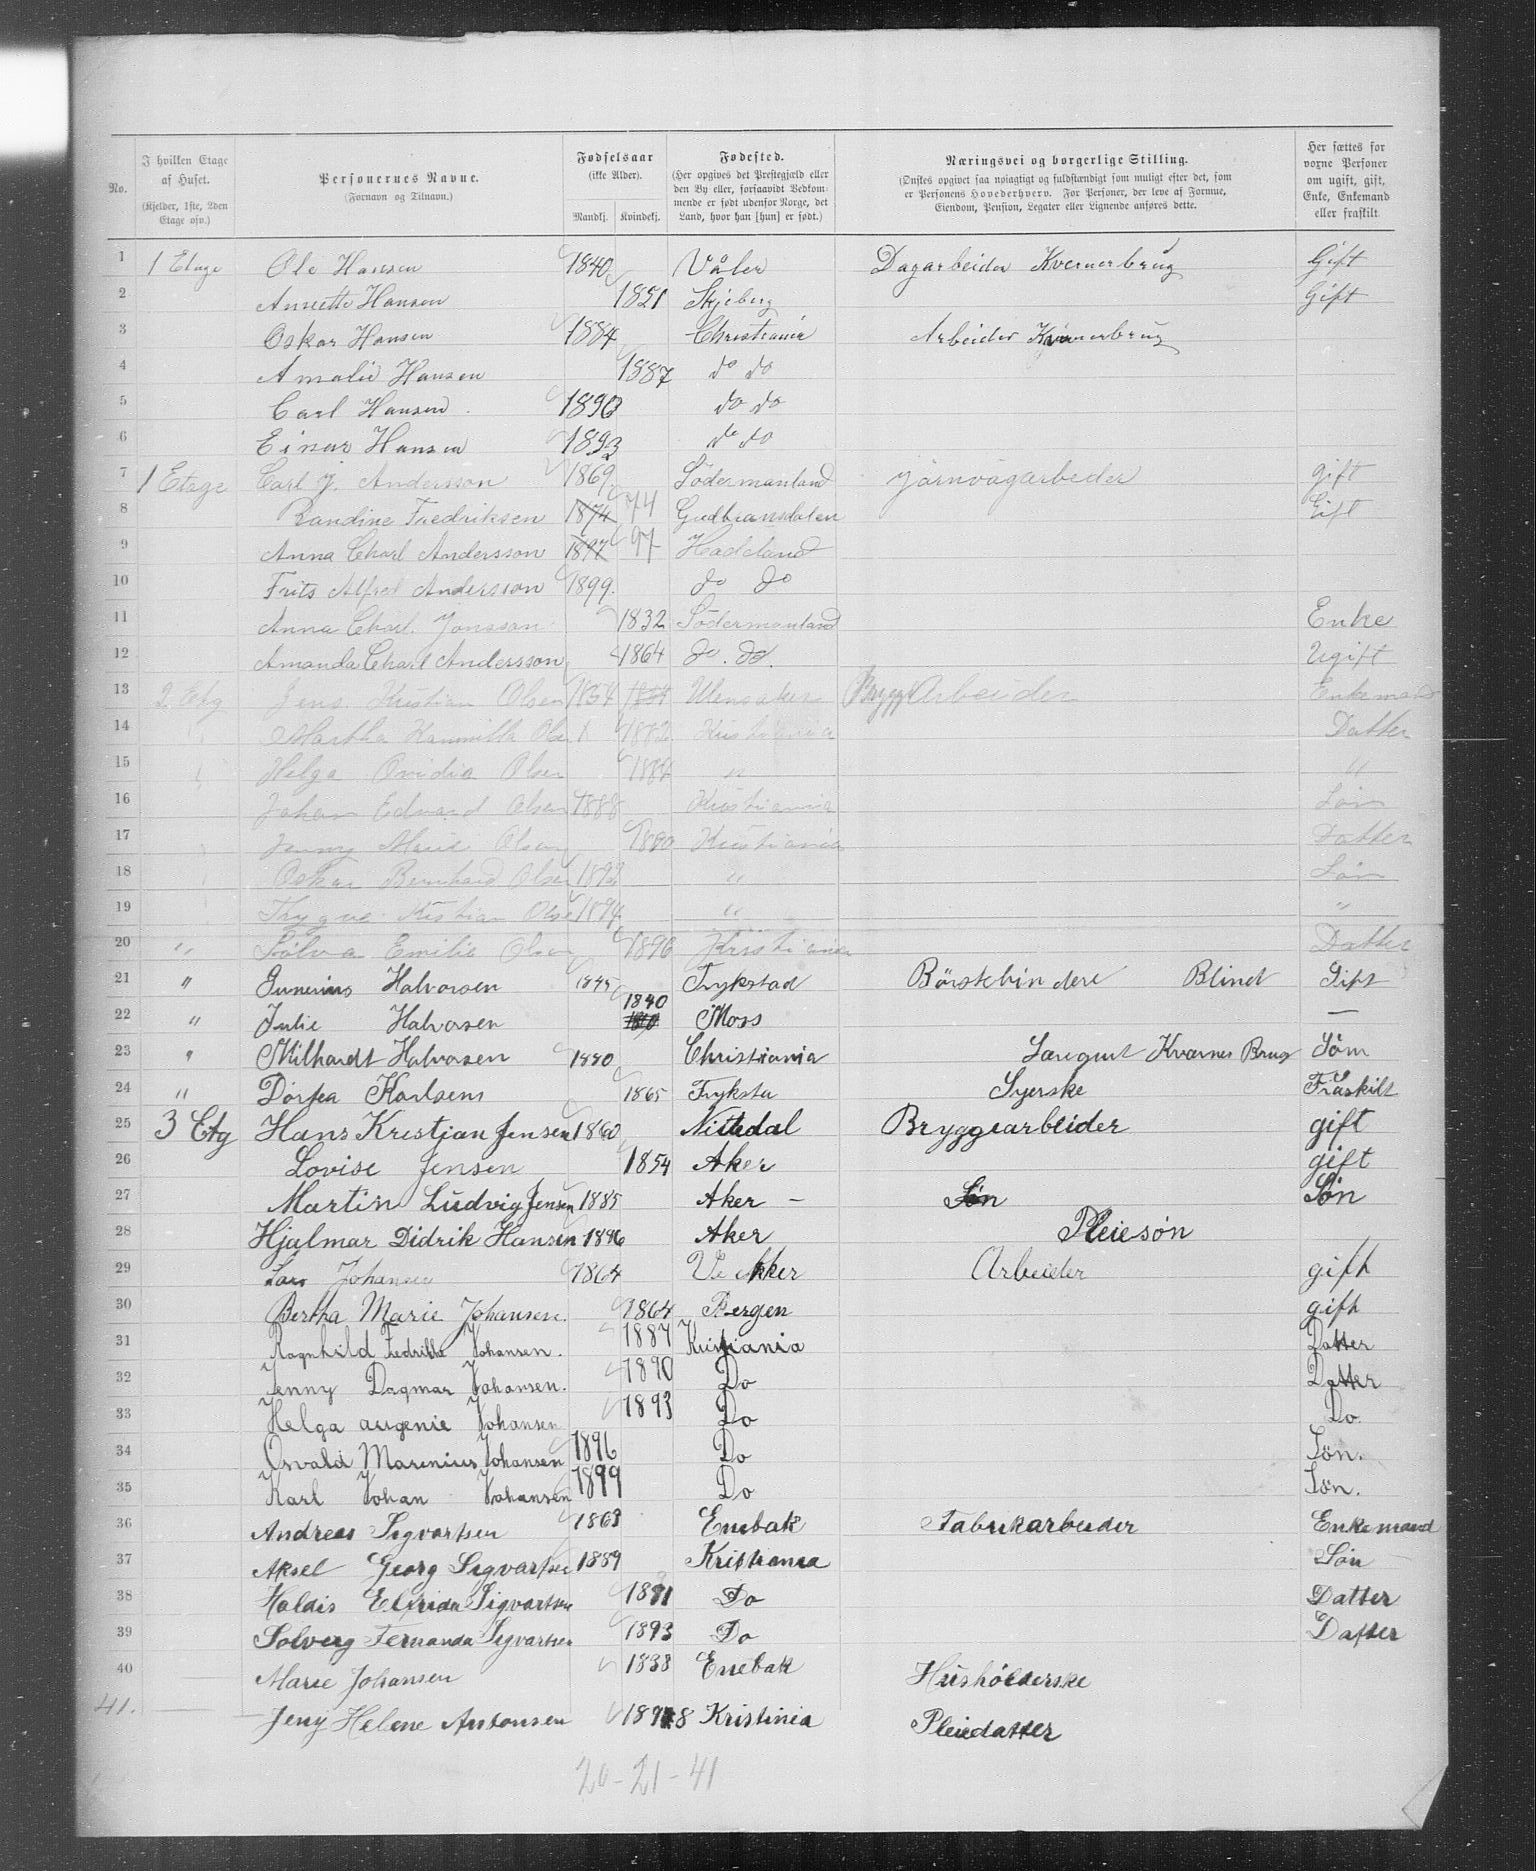 No. | I hvilken Etage af Huset. (Kjelder, 1ste, 2den Etage osv.) | Personernes Navne. (Fornavn og Tilnavn.) | Fødselsaar (ikke Alder). Mandkj. Kvindekj. | Fødested. (Her opgives det Prestegjæld eller den By eller, forsaavidt Vedkommende er født udenfor Norge, det Land, hvor han [hun] er født.) | Næringsvei og borgerlige Stilling. (Ønskes opgivet saa nøiagtigt og fuldstændigt som muligt efter det, som er Personens Hovederhverv. For Personer, der leve af Formue, Eiendom, Pension, Legater eller Lignende anføres dette. | Her sættes for voxne Personer om ugift, gift, Enke, Enkemand eller fraskilt
1 1 Etage Ole Hansen 1840 Våler Dagarbeider Kvernerbrug Gift
2 Annette Hansen 1851 Skjeberg Gift
3 Oskar Hansen 1884 Christiania Arbeider Kvernerbrug
4 Amalie Hansen 1887 do do
5 Carl Hansen 1890 do do
6 Einar Hansen 1893 do do
7 1 Etage Carl J. Andersson 1869 Södermanland Järnvägarbeder gift
8 Randine Fredriksen 1874 74 Gudbransdalen Gift
9 Anna Charl Andersson 1897 97 Hadeland
10 Frits Alfred Andersson 1899. do do
11 Anna Charl. Jonsson 1832 Södermanland Enke
12 Amanda Charl Andersson 1864 do. do. Ugift
13 2 Etg Jens Kristian Olsen 1854 1854 Ulensaker Brygg Arbeider Enkemand
14 Martha Kammilla Olsen 1882 Kristiania Datter
15 Helga Ovidia Olsen 1884 " "
16 Johan Edvard Olsen 1888 Kristiania Søn
17 Jenny Marie Olsen 1890 Kristiania Datter
18 Oskar Bernhard Olsen 1892 " Søn
19 Trygve Kristian Olsen 1894 " "
20 " Solva Emilie Olsen 1896 Kristiania Datter
21 " Gunerius Halvorsen 1845 Trykstad Börstebindere Blind Gift
22 " Julie Halvorsen 1840 Moss —
23 " Milhardt Halvorsen 1880 Christiania Kværnes Brug Søn
24 " Dortea Karlsen 1865 Tryksta Syerske Fraskilt
25 3 Etg Hans Kristjan Jensen 1860 Nitedal Bryggearbeider gift
26 Lovise Jensen 1854 Aker gift
27 Martin Ludvig Jensen 1885 Aker – Søn Søn
28 Hjalmar Didrik Hansen 1896 Aker Pleiesøn
29 Lars Johansen 1864 V. Aker Arbeider gift
30 Bertha Marie Johansen. 1864 Bergen gift
31 Ragnhild Fredrikke Johansen. 1887 Kristiania Datter
32 Jenny Dagmar Johansen. 1890 Do Datter
33 Helga augenie Johansen 1893 Do Do.
34 Osvald Marenius Johansen 1896 Do Søn.
35 Karl Johan Johansen 1899 Do Søn.
36 Andreas Sigvartsen 1863 Enebak Fabrikarbeider Enkemand
37 Aksel Georg Sigvartsen 1889 Kristiania Søn
38 Haldis Elfrida Sigvartsen 1891 Do Datter
39 Solveig Fernanda Sigvartsen 1893 Do Datter
40 Marie Johansen 1838 Enebak Husholderske
41. Jeny Helene Antonsen 1898 Kristinia Pleiedatter
20 - 21 - 41